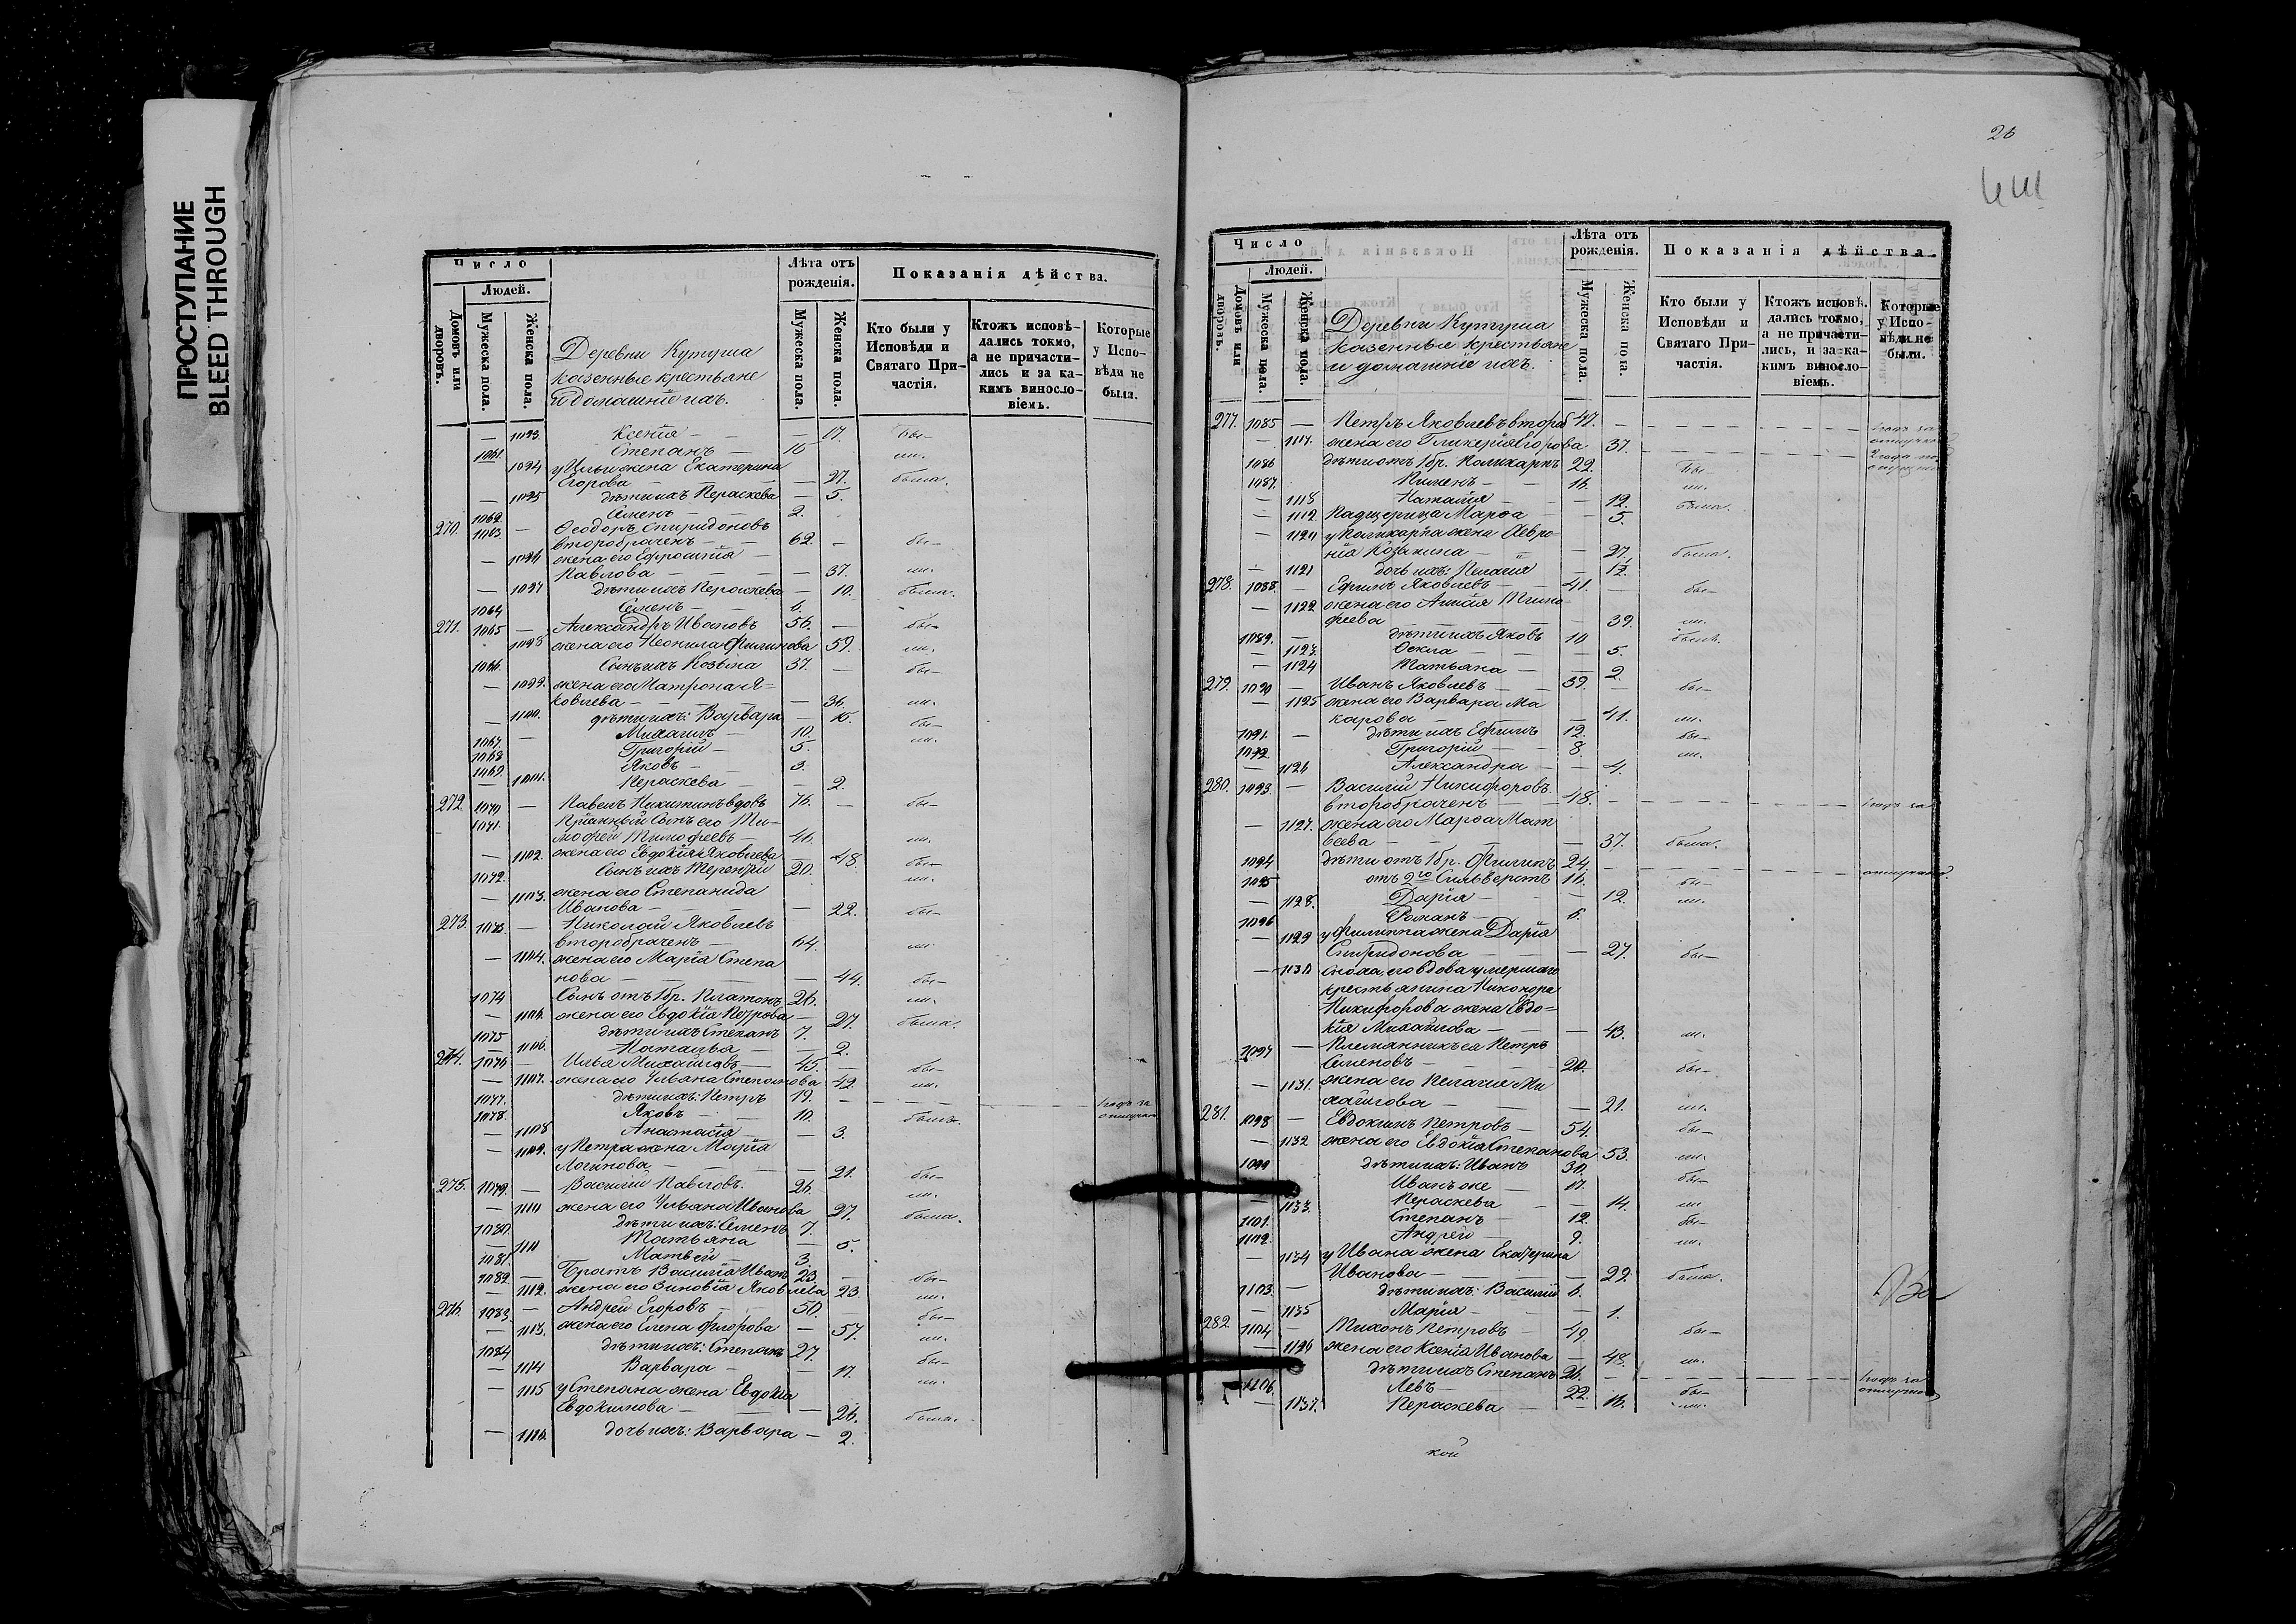 ПРОСТУПАНИЕ
BLEED THROUGH
Число
Людей.
Домовъ или дворовъ.
Мужеска пола.
Женска пола.
Деревни Кутуша
казенные крестьяне
и домашніе ихъ.
Лѣта отъ рожденія.
Мужеска пола.
Женска пола.
Показанія дѣйства.
Кто были у Исповѣди и Святаго Причастія.
Ктожъ исповѣдались токмо, а не причастились и за какимъ винословіемъ.
Которые у Исповѣди не были.
— 1093. Ксенія — 17. бы—
1061. Степанъ — 10 ли.
1094 у Ильи жена Екатерина
Егорова — — 27. была.
— 1095 дѣти ихъ Пераскева — 5.
1062. Семенъ — 2.
270. 1063. — Ѳеодоръ Спиридоновъ
второбраченъ — 62. — бы—
— 1096 жена его Ефросинія
Павлова — — 37. ли.
— 1097 дѣти ихъ Пераскева — 10. была.
1064 Семенъ — 6.
271. 1065 — Александръ Ивановъ 56. — бы—
1098 жена его Неонила Филипова 59. ли.
1066. Сынъ ихъ Козьма 37. — бы—
— 1099. жена его Матрона Я=
ковлева — — 36. ли.
— 1100. дѣти ихъ: Варвара — 15. бы—
1067. — Михаилъ — 10. ли.
1068 Григорій — 5.
1069. Яковъ — 3.
— 1101. Пераскева — — 2.
272. 1070 — Павелъ Никитинъ вдовъ 76. — бы—
1071. Пріимный сынъ его Ти=
мофей Тимофеевъ — 46. ли.
— 1102. жена его Евдокія Яковлева — 48. бы—
1072. Сынъ ихъ Терентій 20. ли.
— 1103. жена его Степанида
Иванова — — 22. бы—
273. 1073. — Николай Яковлевъ
второбраченъ — 64. ли.
— 1104. жена его Марія Степа
нова — — 44. бы—
1074 Сынъ отъ 1 бр. Платонъ 26. ли.
— 1105. жена его Евдокія Петрова — 27. была.
1075 дѣти ихъ Степанъ 7.
— 1106. Наталья — — 2.
274. 1076 — Илья Михайловъ — 45. — бы—
— 1107. жена его Ульяна Степанова 42 ли.
1077. дѣти ихъ: Петръ 19. — —
1078. Яковъ — 10. былъ.
— 1108 Анастасія — — 3.
— 1109. у Петра жена Марія
Логинова — — 21. бы—
275. 1079. — Василій Павловъ. 26. ли.
— 1110 жена его Ульяна Иванова 27. была.
1080. дѣти ихъ: Семенъ 7.
— 1111 Татьяна — 5.
1081. Матвей — 3.
1082. — Братъ Василія Иванъ 23. — бы—
— 1112. жена его Зиновія Яковлева 23 ли.
276. 1083 — Андрей Егоровъ — 50. бы—
— 1113. жена его Елена Флорова — 57. ли.
1084 дѣти ихъ: Степанъ 27. бы—
— 1114 Варвара — 17. ли.
— 1115 у Степана жена Евдокія
Евдокимова — — 26. была.
— 1116. дочь ихъ: Варвара — 2.
26
Число
Людей.
Домовъ или дворовъ.
Мужеска пола.
Женска пола.
Деревни Кутуша
казенные крестьяне
и домашніе ихъ.
Лѣта отъ рожденія.
Мужеска пола.
Женска пола
Показанія дѣйства.
Кто были у Исповѣди и Святаго Причастія.
Ктожъ исповѣдались токмо, а не причастились, и за какимъ винословіемъ.
Которые у Исповѣди не были.
277. 1085 — Петръ Яковлевъ второб 47. —
— 1117. жена его Гликерія Егорова 37.
1086 дѣти отъ 1 бр. Поликарпъ 22. бы—
1087. Пименъ — 16. ли.
— 1118 Наталія — — 12. была.
— 1119 Падщерица Марѳа — 5.
— 1120 у Поликарпа жена Февро=
нія Козьмина — — 27. была.
— 1121 дочь ихъ: Пелагія — 1/2.
278. 1088. — Ефимъ Яковлевъ — 41. — бы—
— 1122 жена его Анисія Тимо=
феева — — 39. ли.
1089. — дѣти ихъ Яковъ 10 былъ.
— 1123. Фекла — 5.
— 1124 Татьяна — — 2.
279. 1090 — Иванъ Яковлевъ — 39. — бы—
— 1125 жена его Варвара Ма
карова — — 41. ли.
1091. — дѣти ихъ Ефимъ 12. бы—
1092. Григорій — 8. ли.
— 1126 Александра — — 4.
280. 1093. — Василій Никифоровъ.
второбраченъ — 48. —
— 1127. жена его Марѳа Мат
веева — — 37. была.
1094 дѣти отъ 1 бр. Филипъ 24. —
1095 отъ 2го Сильверстъ 16. бы—
— 1128. Дарія — — 12. ли.
1096 Романъ — 6.
— 1129 у Филиппа жена Дарія
Спиридонова — — 27. бы—
— 1130 сноха, его вдова умершаго
крестьянина Никонора
Никифорова жена Евдо=
кія Михайлова — — 43. ли.
1097 — Племянникъ ея Петръ
Семеновъ — 20. бы—
— 1131. жена его Пелагія Ми
хайлова — — 21. ли.
281. 1098 — Евдокимъ Петровъ — 54. бы—
— 1132 жена его Евдокія Степанова 53. ли.
1099 дѣти ихъ: Иванъ 30. бы—
Иванъ же — 17.
— 1133. Пераскева — — 14. ли
1101. Степанъ — 12. бы—
1102. Андрей — 9. ли.
— 1134 у Ивана жена Екатерина
Иванова — — 22. была.
1103. — дѣти ихъ: Василій 6.
— 1135 Марія — — 1.
282. 1104 — Тихонъ Петровъ 49 бы—
— 1136 жена его Ксенія Иванова — 48. ли.
дѣти ихъ Степанъ 26. —
1106 Левъ — 22. бы—
— 1137. Пераскева — 16. ли.
кой